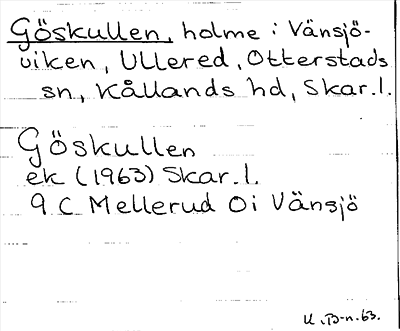 Göskullen, holme i Vänsjö-
viken, Ullered, Otterstads
sn, Kållands hd, Skar.l.
Göskullen
ek (1963) Skar.l.
9 C Mellerud Oi Vänsjö
U.B-n.63.